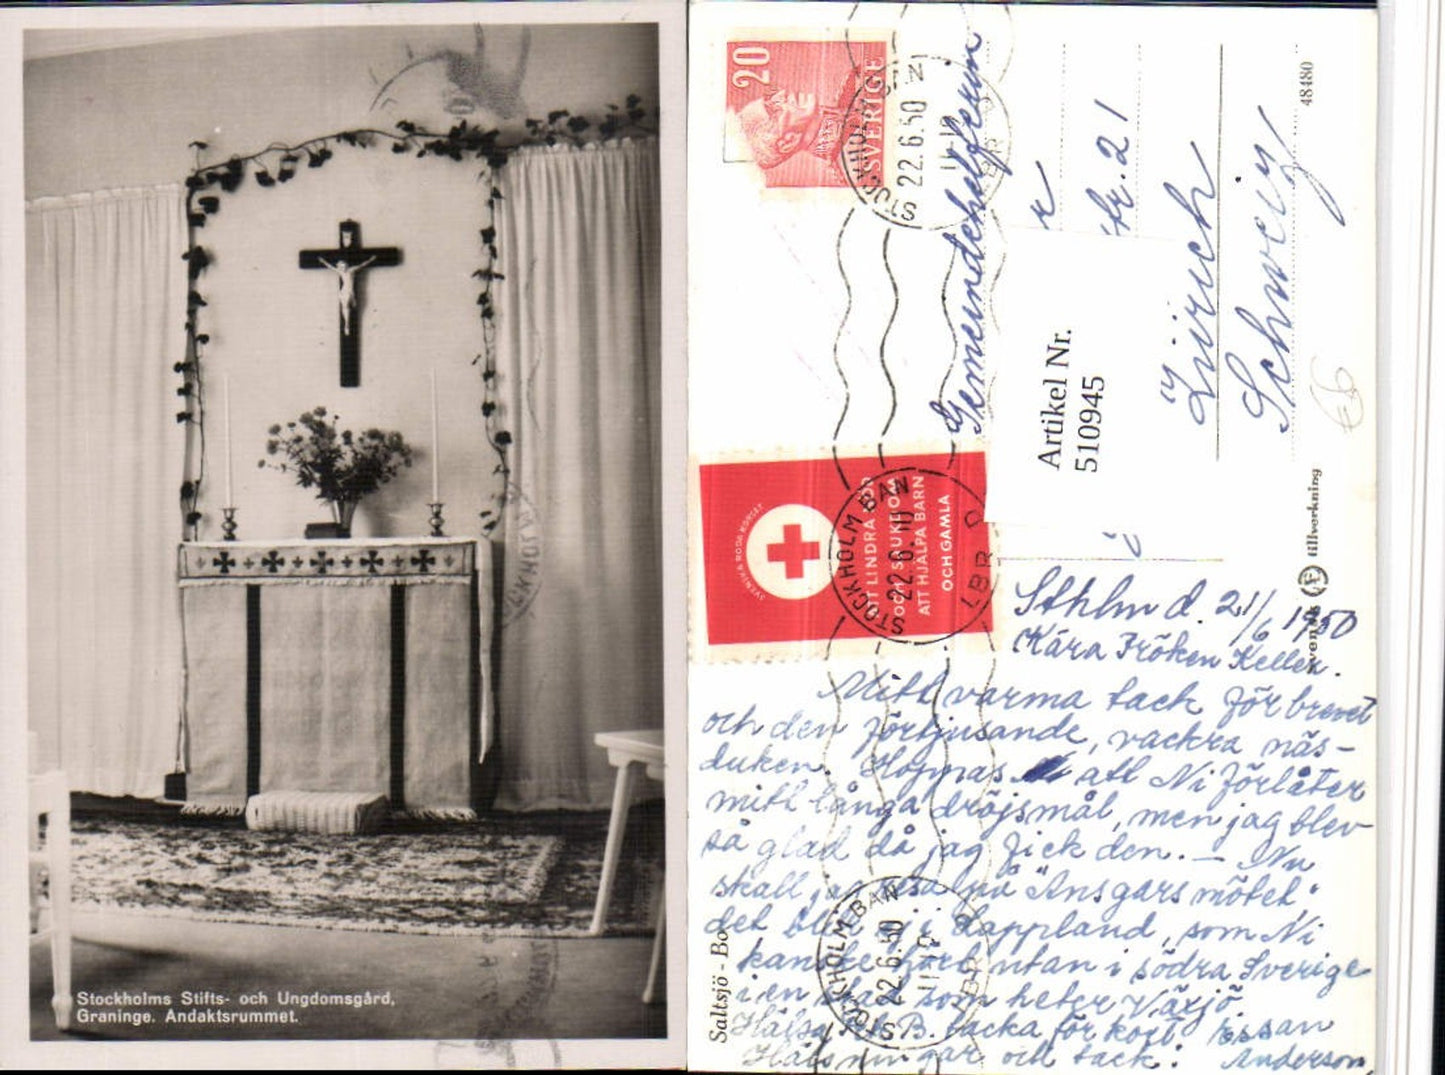 Stockholms Stifts- och Ungdomsgård,
Graninge. Andaktsrummet.
20
SVERIGE
STOCKHOLM BAN
22.6.50
LBR
Gemeindehelferin
str. 21
Zürich
Schweiz
48480
Artikel Nr.
510945
SVENSKA RÖDA KORSET
ATT LINDRA NÖD
OCH SJUKDOM
ATT HJÄLPA BARN
OCH GAMLA
STOCKHOLM BAN
22.6.50
LBR
Svensk tillverkning
Saltsjö - Bo
Sthlm d. 21/6 1950
Kära Fröken Keller.
Mitt varma tack för brevet
och den förtjusande, vackra näs-
duken. Hoppas att Ni förlåter
mitt långa dröjsmål, men jag blev
så glad då jag fick den. — Nu
skall jag resa på "Ansgars mötet"
det blev ej i Lappland, som Ni
kanske hört utan i södra Sverige
i en stad som heter Växjö.
Hälsa B. tacka för kort
Hälsningar och tack! Anderson
STOCKHOLM BAN
22.6.50
LBR